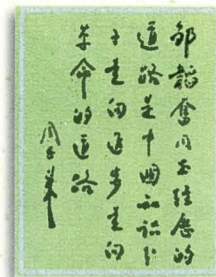 邹韬奋同志经历的
道路是中国知识分
子走向进步走向
革命的道路
周恩来